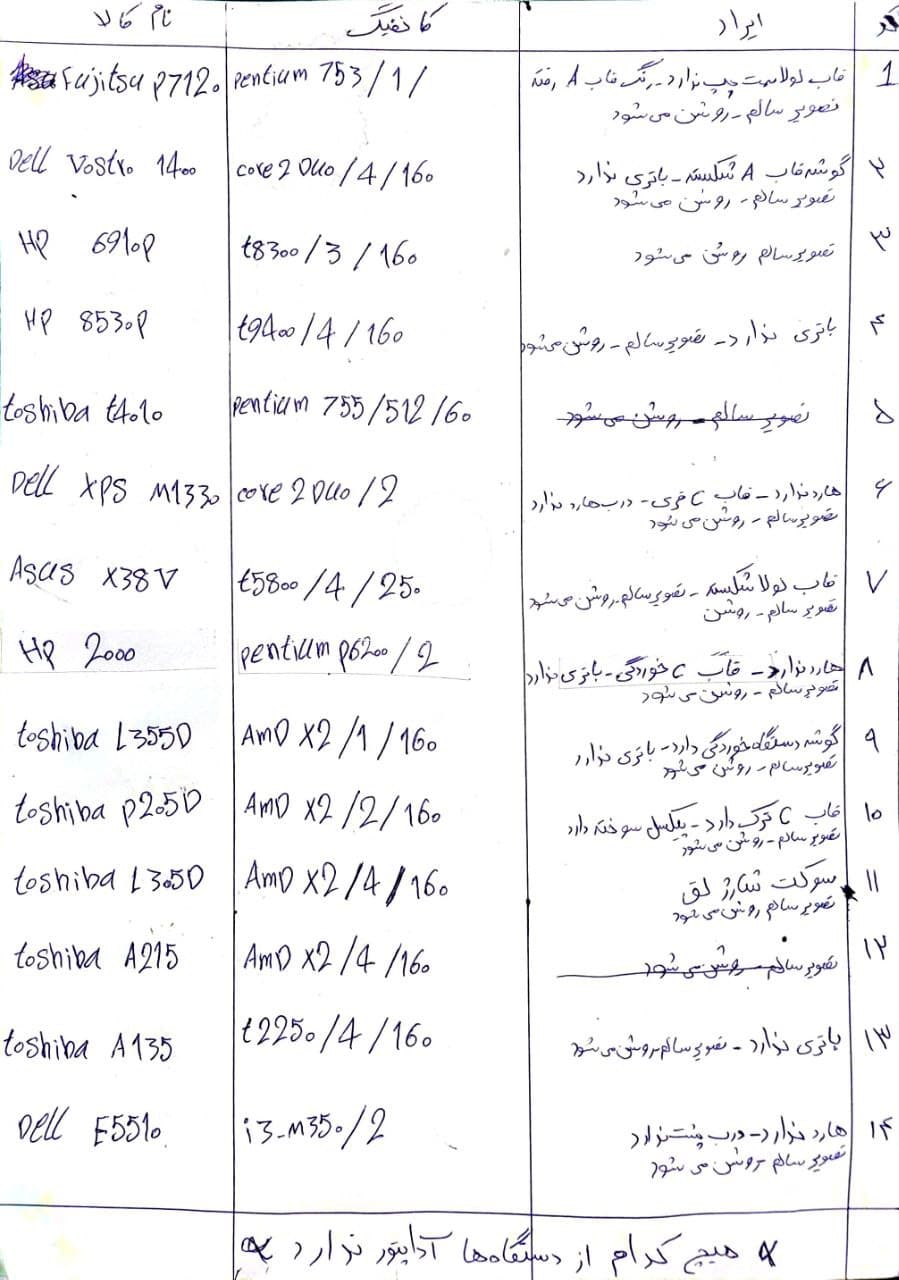 کد ایراد کانفیگ نام کالا
1 قاب لولا سمت چپ ندارد - رنگ قاب A رفته pentium 753/1/ Fujitsu p7120
تصویر سالم - روشن می شود
۲ گوشه قاب A شکسته - باتری ندارد core 2 Duo/4/160 Dell Vostro 1400
تصویر سالم - روشن می شود
۳ تصویر سالم روشن می شود t8300/3/160 HP 6910p
۴ باتری ندارد - تصویر سالم - روشن می شود t9400/4/160 HP 8530p
۵ تصویر سالم - روشن می شود pentium 755/512/60 toshiba t4010
۶ هارد ندارد - قاب C فری - درب هارد ندارد core 2 Duo/2 Dell XPS M1330
تصویر سالم - روشن می شود
۷ قاب لولا شکسته - تصویر سالم - روشن می شود t5800/4/250 Asus X38V
تصویر سالم - روشن
۸ هارد ندارد - قاب C خوردگی - باتری ندارد pentium p6200/2 HP 2000
تصویر سالم - روشن می شود
۹ گوشه دستگاه خوردگی دارد - باتری ندارد AmD X2/1/160 toshiba L355D
تصویر سالم - روشن می شود
۱۰ قاب C ترک دارد - پیکسل سوخته دارد AmD X2/2/160 toshiba p205D
تصویر سالم - روشن می شود
۱۱ سوکت شارژ لق AmD X2/4/160 toshiba L305D
تصویر سالم روشن می شود
۱۲ تصویر سالم - روشن می شود AmD X2/4/160 toshiba A215
۱۳ باتری ندارد - تصویر سالم - روشن می شود t2250/4/160 toshiba A135
۱۴ هارد ندارد - درب پشت ندارد i3-m350/2 Dell E5510
تصویر سالم - روشن می شود
* هیچ کدام از دستگاه ها آداپتور ندارد *